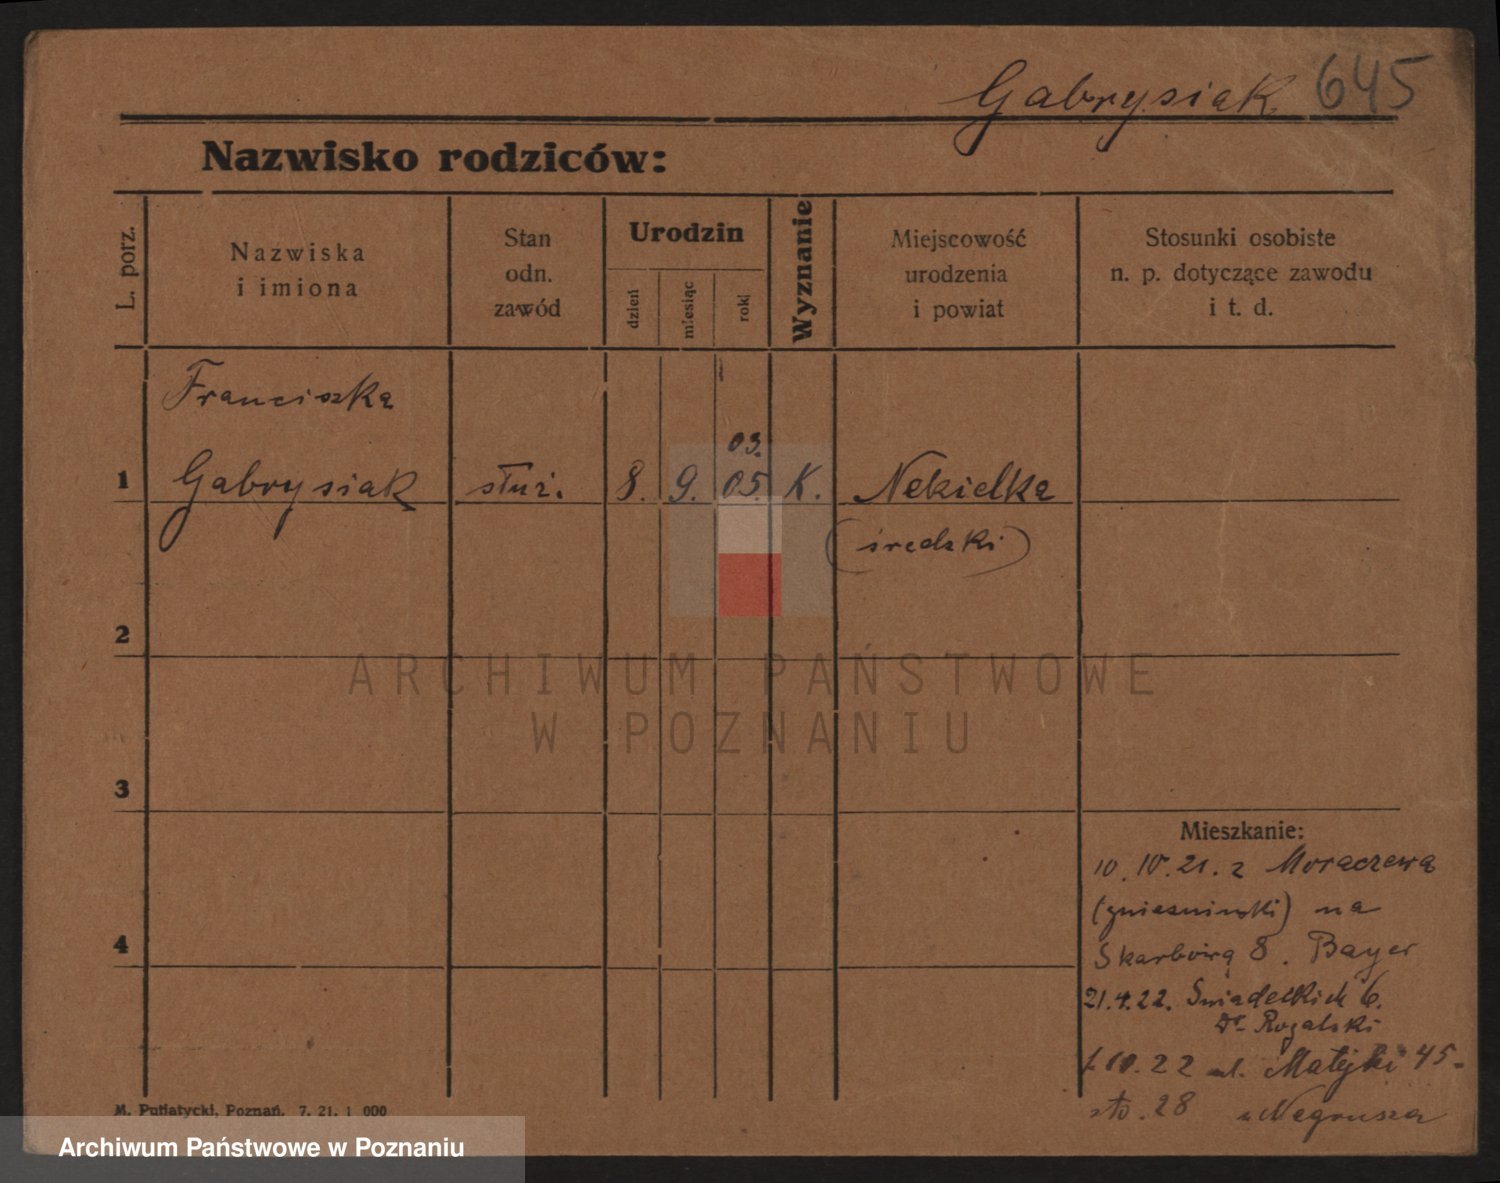 Gabrysiak 645
Nazwisko rodziców:
L. porz.
Nazwiska
i imiona
Stan
odn.
zawód
Urodzin
dzień
miesiąc
rok
Wyznanie
Miejscowość
urodzenia
i powiat
Stosunki osobiste
n. p. dotyczące zawodu
i t. d.
Franciszka
03.
1 Gabrysiak służ. 8. 9. 05. K. Nekielka
(średzki)
2
ARCHIWUM PAŃSTWOWE
W POZNANIU
3
Mieszkanie:
10. 10. 21. z Moraczewa
(gnieźnieński) na
4
Skarbową 8. Bayer
21.4.22. Śniadeckich 6.
Dr Rogalski
10. 22 ul. Matejki 45
28
M. Putiatycki, Poznań. 7. 21. 1 000
Archiwum Państwowe w Poznaniu